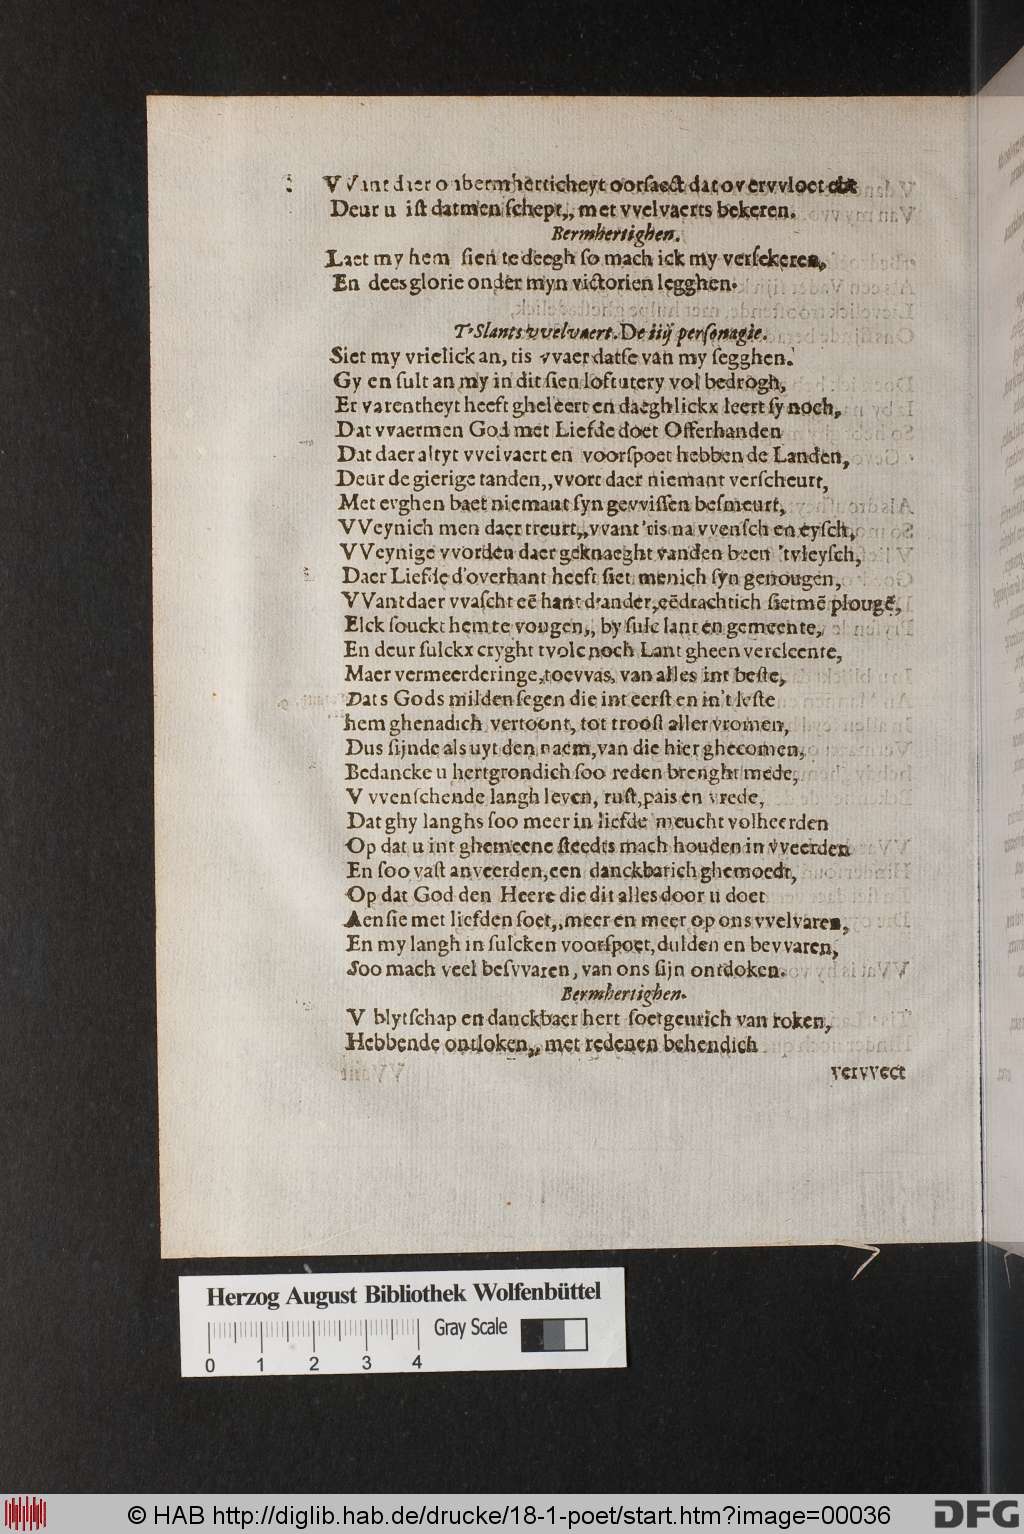 VVant daer onbermherticheyt oorsaect dat overvvloet ebt
Deur u ist datmen schept,, met vvelvaerts bekeren.
Bermhertighen.
Laet my hem sien te deegh so mach ick my versekeren,
En dees glorie onder myn victorien legghen.
T'Slants vvelvaert. De iiij personagie.
Siet my vrielick an, tis vvaer datse van my segghen.
Gy en sult an my in dit sien loftutery vol bedrogh,
Ervarentheyt heeft gheleert en daeghlickx leert sy noch,
Dat vvaermen God met Liefde doet Offerhanden
Dat daer altyt vvelvaert en voorspoet hebben de Landen,
Deur de gierige tanden,, vvort daer niemant verscheurt,
Met eyghen baet niemant syn gevvissen besmeurt,
VVeynich men daer treurt,, vvant 'tis na vvensch en eysch,
VVeynige vvorden daer geknaeght vanden been 'tvleysch,
Daer Liefde d'overhant heeft siet menich syn genougen,
VVant daer vvascht eē hant d'ander, eēdrachtich sietmē plougē,
Elck souckt hem te vougen,, by sulc lant en gemeente,
En deur sulckx cryght tvolc noch Lant gheen vercleente,
Maer vermeerderinge, toevvas, van alles int beste,
Dats Gods milden segen die int eerst en in't leste
hem ghenadich vertoont, tot troost aller vromen,
Dus sijnde als uyt den naem, van die hier ghecomen,
Bedancke u hertgrondich soo reden brenght mede,
V vvenschende langh leven, rust, pais en vrede,
Dat ghy langhs soo meer in liefde meucht volheerden
Op dat u int ghemeene steedts mach houden in vveerden
En soo vast anveerden, een danckbarich ghemoedt,
Op dat God den Heere die dit alles door u doet
Aensie met liefden soet,, meer en meer op ons vvelvaren,
En my langh in sulcken voorspoet, dulden en bevvaren,
Soo mach veel besvvaren, van ons sijn ontdoken.
Bermhertighen.
V blytschap en danckbaer hert soetgeurich van roken,
Hebbende ontloken,, met redenen behendich
vervvect
Herzog August Bibliothek Wolfenbüttel
Gray Scale
0 1 2 3 4
© HAB http://diglib.hab.de/drucke/18-1-poet/start.htm?image=00036
DFG